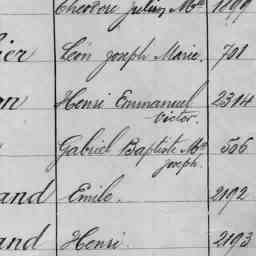 Théodore Julien Mie 1899
ier Léon Joseph Marie. 701
on Henri Emmanuel 2314
Victor.
Gabriel Baptiste Mie 506
Joseph.
and Emile. 2192
and Henri. 2193